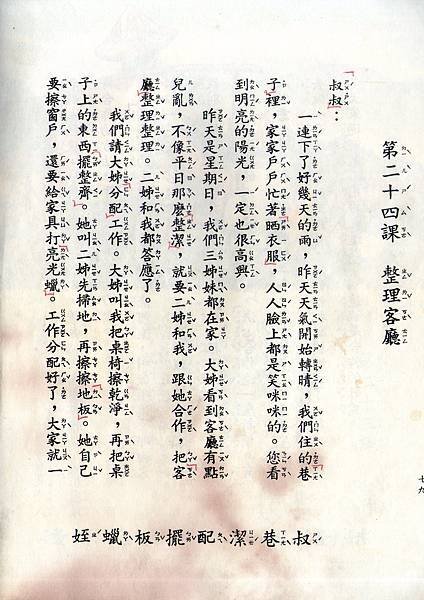 第二十四課　整理客廳
叔叔：
一連下了好幾天的雨，昨天天氣開始轉晴，我們住的巷
子裡，家家戶戶忙著晒衣服，人人臉上都是笑咪咪的。您看
到明亮的陽光，一定也很高興。
昨天是星期日，我們三姊妹都在家。大姊看到客廳有點
兒亂，不像平日那麼整潔，就要二姊和我，跟她合作，把客
廳整理整理。二姊和我都答應了。
我們請大姊分配工作。大姊叫我把桌椅擦乾淨，再把桌
子上的東西擺整齊。她叫二姊先掃地，再擦擦地板。她自己
要擦窗戶，還要給家具打亮光蠟。工作分配好了，大家就一
叔巷潔配擺板蠟姪
七九